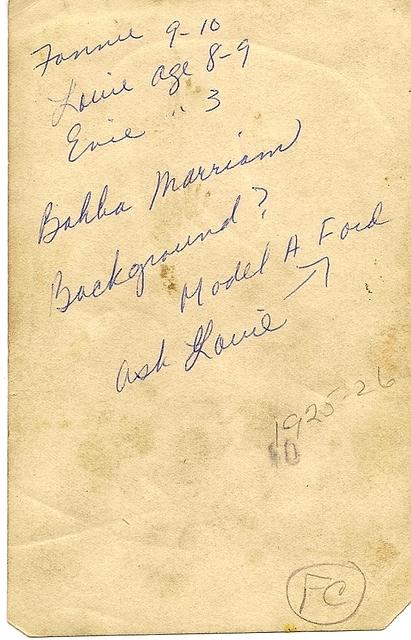 Fannie 9-10
Louie age 8-9
Evie " 3
Bohba Marriam
Background?
Model A Ford
Ask Louie
1925-26
10
FC